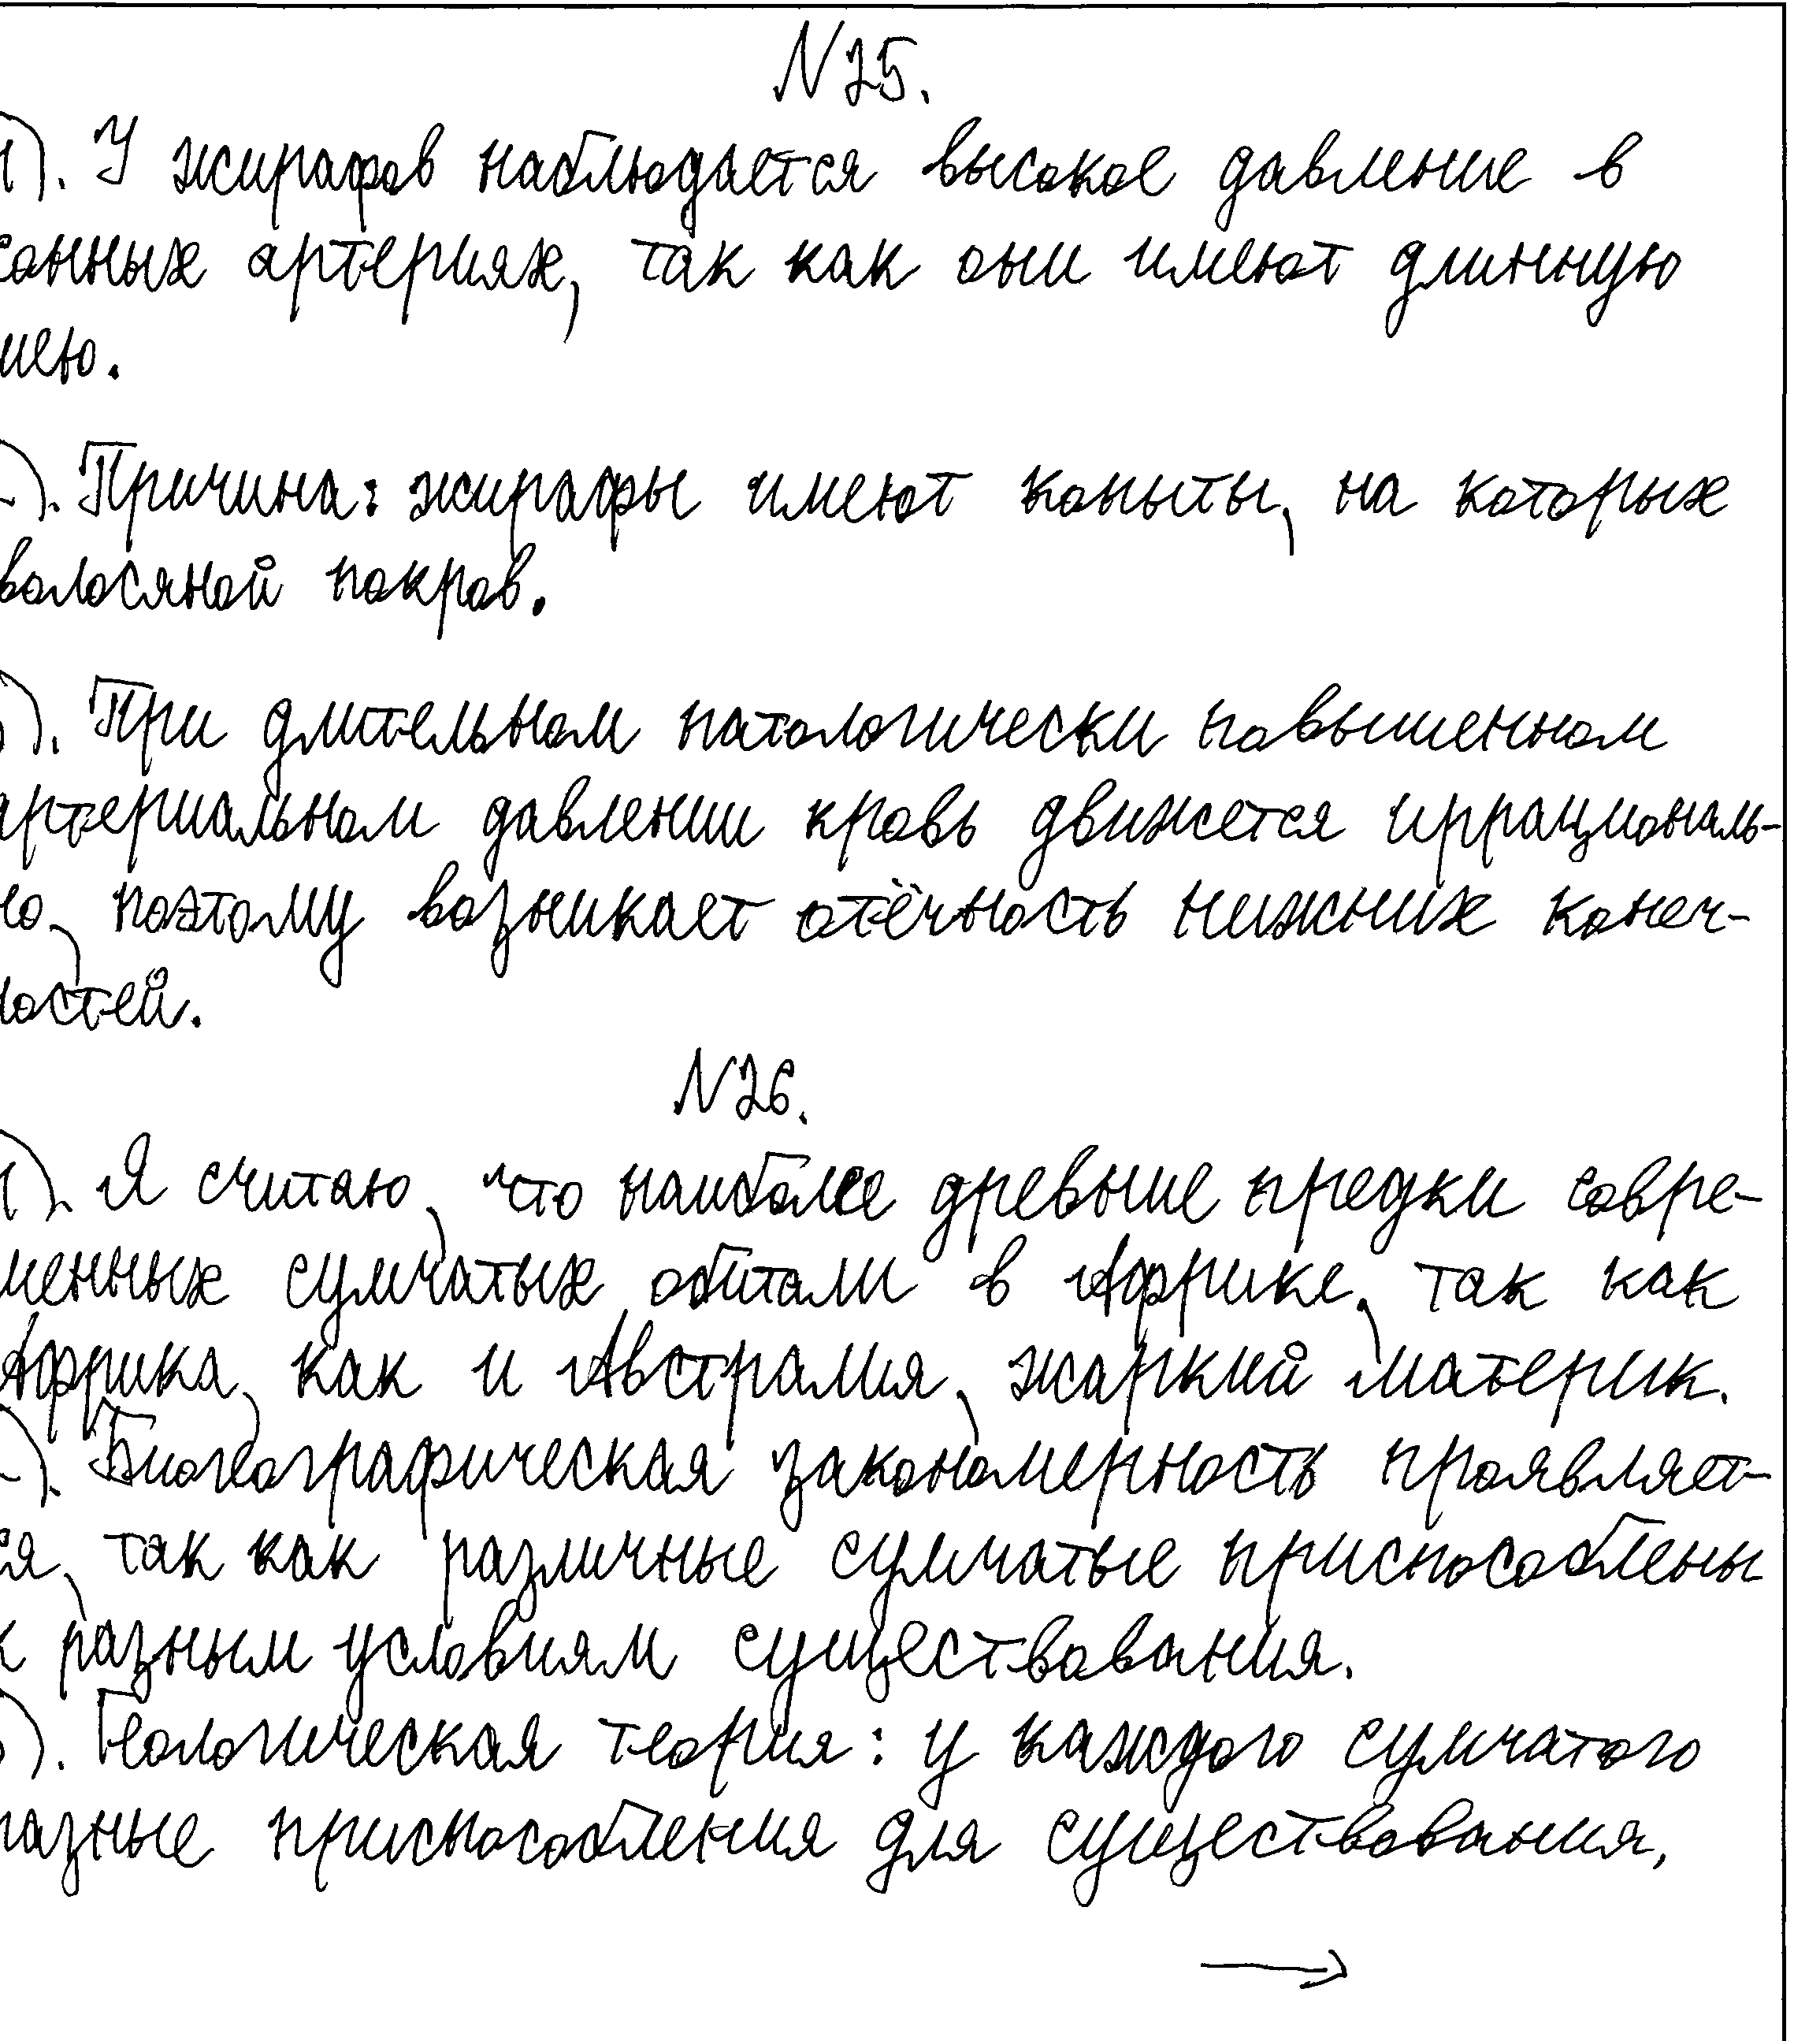 N25.
1). У жирафов наблюдается высокое давление в
сонных артериях, так как они имеют длинную
шею.
2). Причина: жирафы имеют копыты, на которых
волосяной покров.
3). При длительном патологически повышенном
артериальном давлении кровь движется иррациональ-
но, поэтому возникает отёчность нижних конеч-
ностей.
N26.
1). Я считаю, что наиболее древние предки совре-
менных сумчатых обитали в Африке, так как
Африка, как и Австралия, жаркий материк.
2). Биогеографическая закономерность проявляет-
ся, так как различные сумчатые приспособлены
к разным условиям существования.
3). Геологическая теория: у каждого сумчатого
разные приспособления для существования,
→